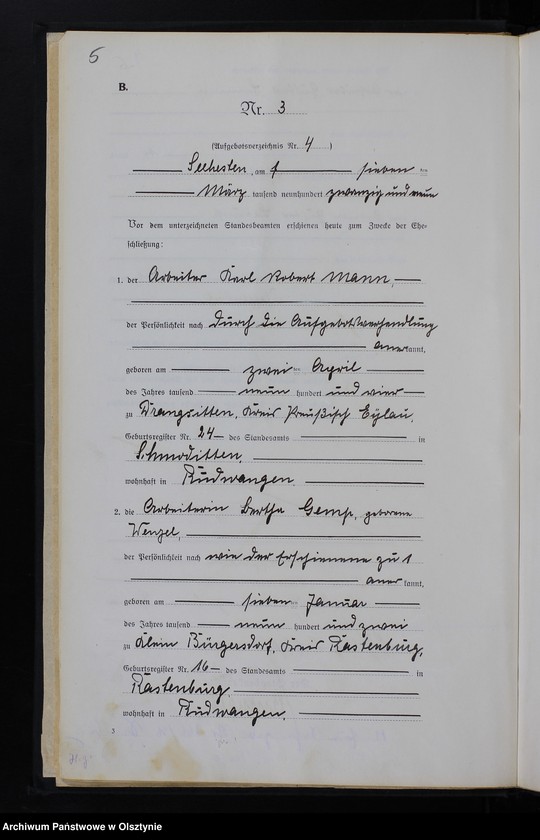 5
B.
Nr. 3
(Aufgebotsverzeichnis Nr. 4)
Seehesten, am sieben ten
März tausend neunhundert zwanzig und neun
Vor dem unterzeichneten Standesbeamten erschienen heute zum Zwecke der Ehe-
schließung:
1. der Arbeiter Karl Robert Mann,
der Persönlichkeit nach durch die Aufgebotsverhandlung
anerkannt,
geboren am zwei ten April
des Jahres tausend neun hundert und vier
zu Drangsitten, Kreis Preußisch Eylau,
Geburtsregister Nr. 24 des Standesamts in
Schmoditten,
wohnhaft in Rudwangen
2. die Arbeiterin Bertha Gemp, geborene
Wenzel,
der Persönlichkeit nach wie der Erschienene zu 1
anerkannt,
geboren am sieben ten Januar
des Jahres tausend neun hundert und zwei
zu Klein Bürgersdorf, Kreis Rastenburg,
Geburtsregister Nr. 16 des Standesamts in
Rastenburg,
wohnhaft in Rudwangen,
3
Archiwum Państwowe w Olsztynie